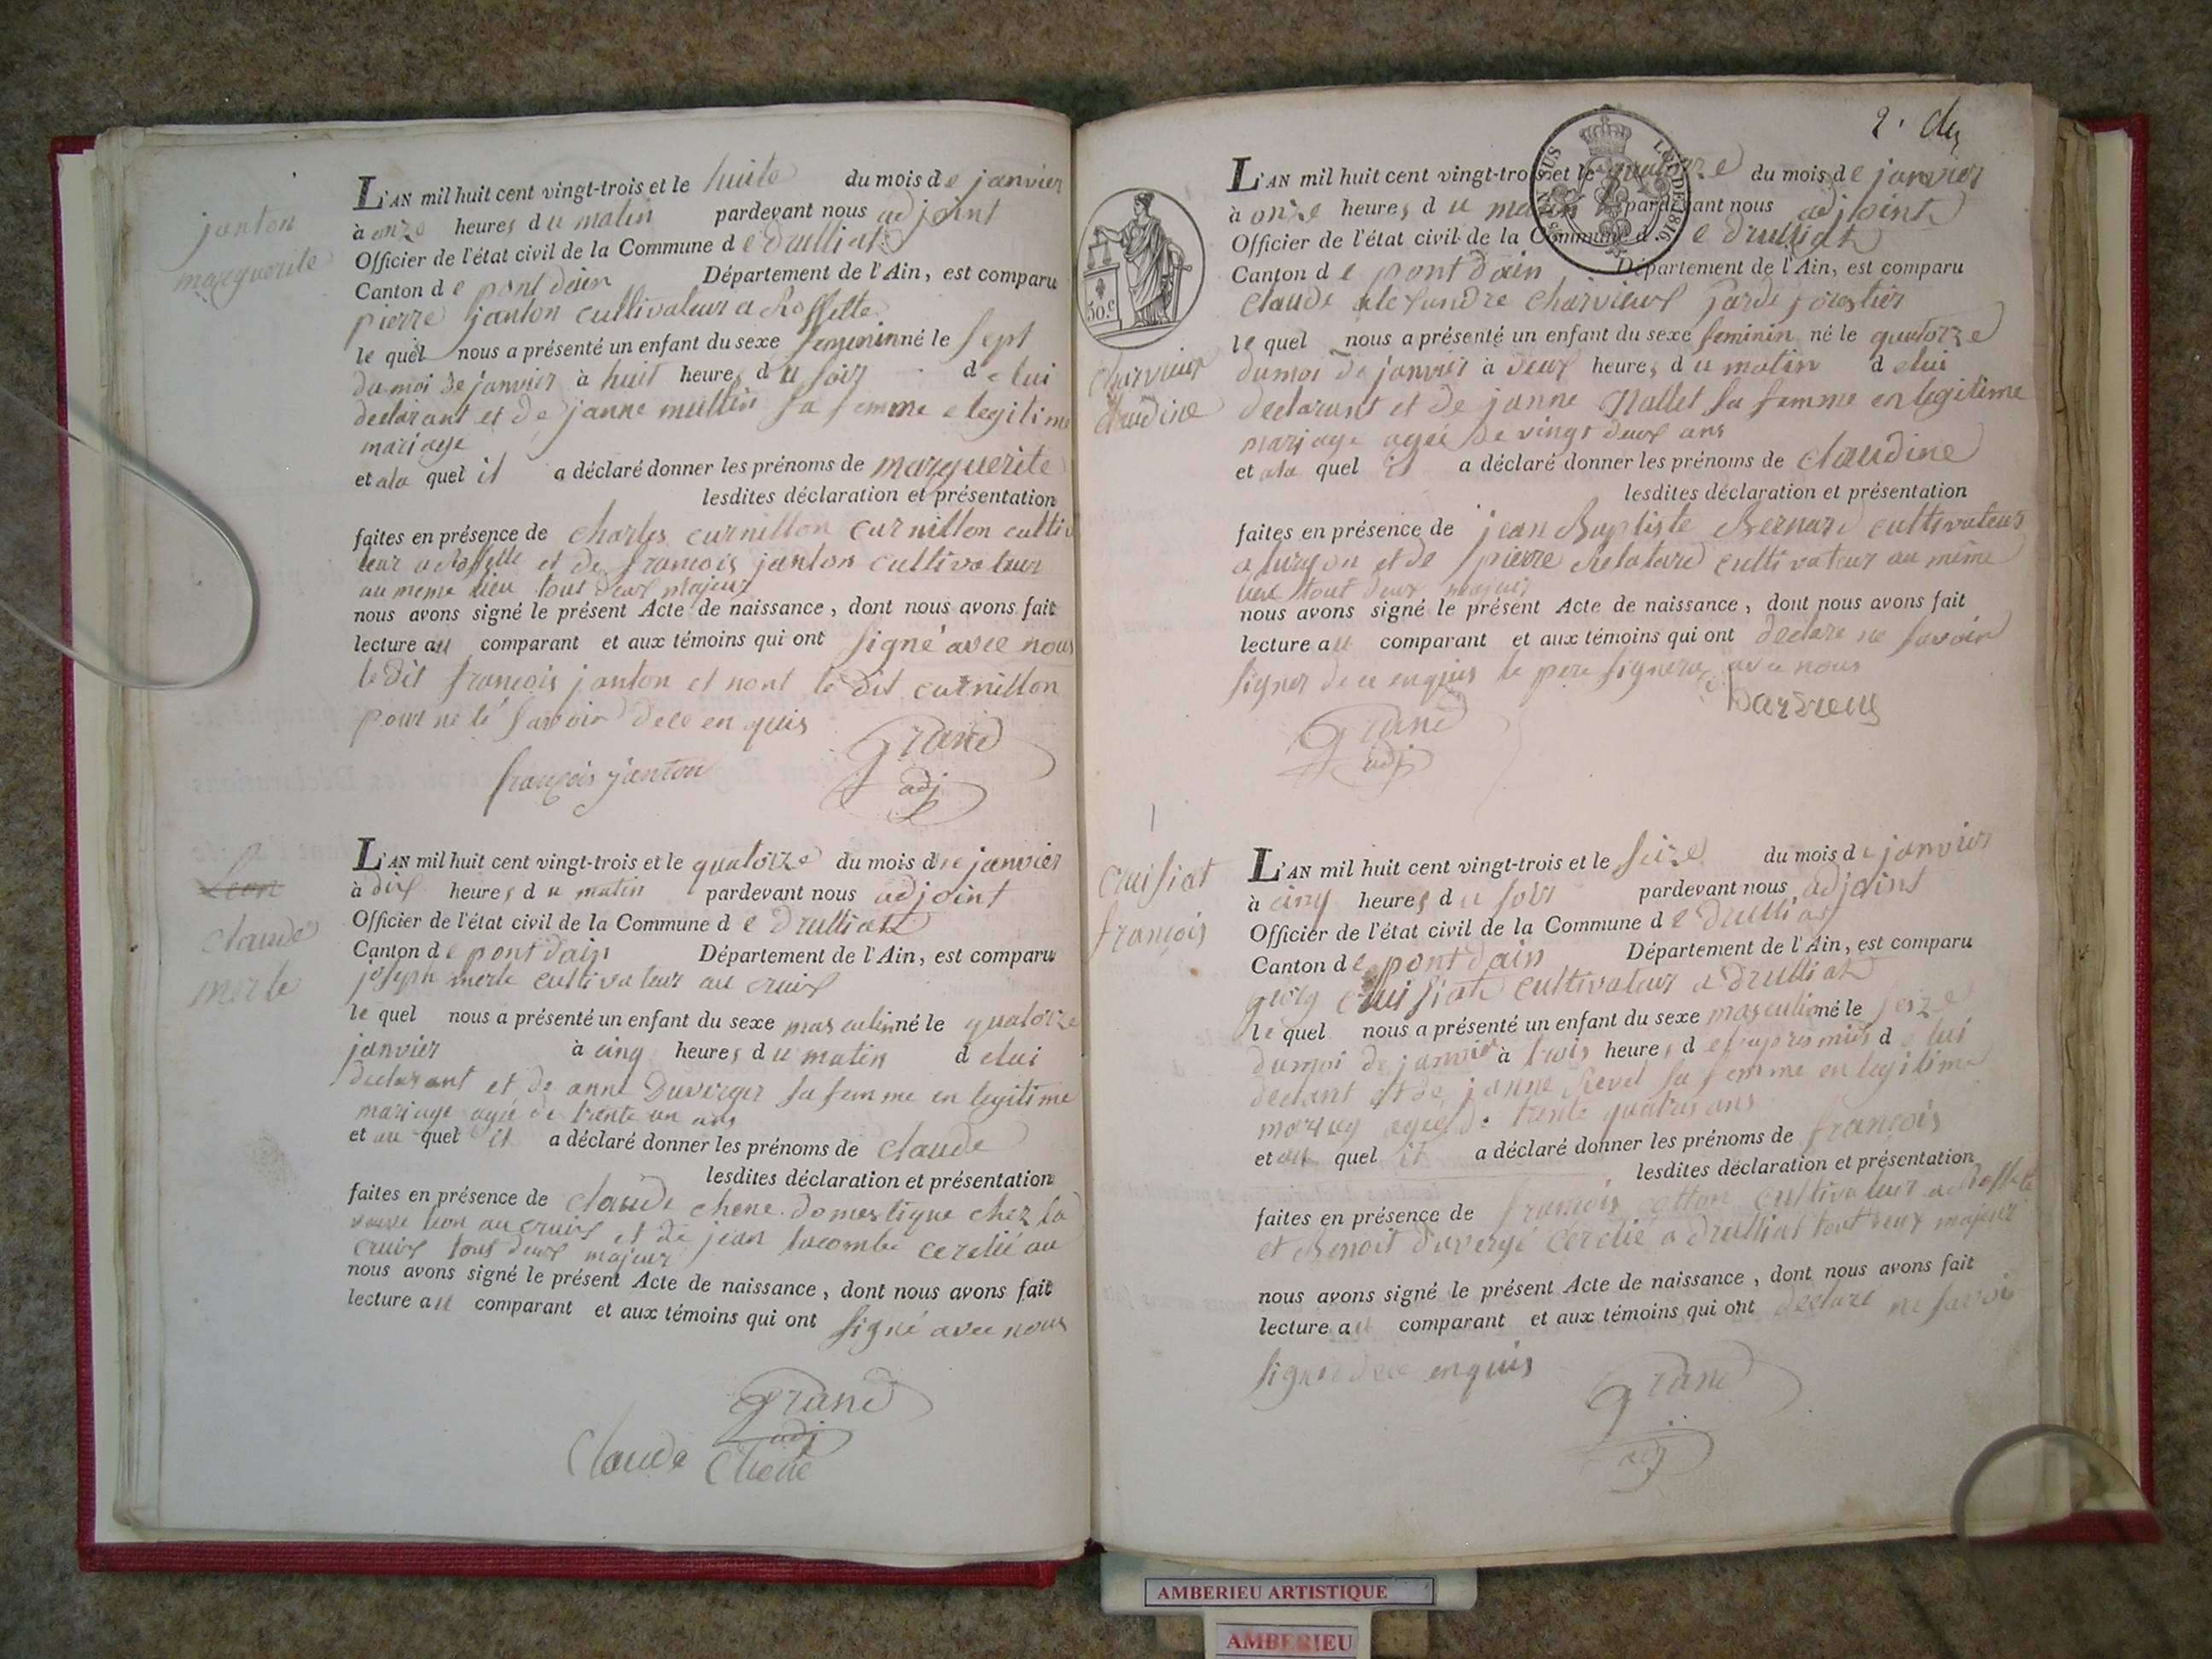 janton
marguerite
L'AN mil huit cent vingt-trois et le huite du mois de janvier
à onze heures du matin pardevant nous adjoint
Officier de l'état civil de la Commune de Drulliat
Canton de pont dain Département de l'Ain, est comparu
pierre janton cultivateur a Roffette
le quel nous a présenté un enfant du sexe femininné le sept
du moi de janvier à huit heures du soir de lui
declarant et de janne mullin sa femme e legitime
mariage
et ala quel il a déclaré donner les prénoms de marguerite
lesdites déclaration et présentation
faites en présence de charles curnillon curnillon cultiv
teur a Roffette et de francois janton cultivateur
au meme lieu tout deux majeur
nous avons signé le présent Acte de naissance, dont nous avons fait
lecture au comparant et aux témoins qui ont signé avec nous
le dit francois janton et nont le dit curnillon
pour ne lé savoir dece en quis
Grand
adj
françois janton
Leon
claude
merle
L'AN mil huit cent vingt-trois et le quatorze du mois de janvier
à dix heures du matin pardevant nous adjoint
Officier de l'état civil de la Commune de Drulliat
Canton de pont dain Département de l'Ain, est comparu
joseph merle cultivateur au cruix
le quel nous a présenté un enfant du sexe masculinné le quatorze
janvier à cinq heures du matin de lui
declarant et de anne Duverger sa femme en legitime
mariage agée de trente un ans
et au quel il a déclaré donner les prénoms de claude
lesdites déclaration et présentation
faites en présence de claude chene domestique chez la
veuve leon au cruix et de jean lacombe cerclié au
cruix tout deux majeur
nous avons signé le présent Acte de naissance, dont nous avons fait
lecture au comparant et aux témoins qui ont signé avec nous
Grand
adj
Claude Chene
2.
LOI DE 1816
50.c
charvieux
claudine
L'AN mil huit cent vingt-trois et le quatorze du mois de janvier
à onze heures du matin pardevant nous adjoint
Officier de l'état civil de la Commune de Drulliat
Canton de pont dain Département de l'Ain, est comparu
claude alexandre charvieux garde forestier
le quel nous a présenté un enfant du sexe feminin né le quatorze
du moi de janvier à deux heures du matin de lui
declarant et de janne Nallet sa femme en legitime
mariage agée de vingt deux ans
et ala quel il a déclaré donner les prénoms de claudine
lesdites déclaration et présentation
faites en présence de jean Baptiste Bernard cultivateur
a turgon et de pierre cultivateur au même
lieu tout deux majeur
nous avons signé le présent Acte de naissance, dont nous avons fait
lecture au comparant et aux témoins qui ont declare ne savoir
signer dece enquis le pere signera avec nous
Grand
adj
cruisiat
françois
L'AN mil huit cent vingt-trois et le seize du mois de janvier
à cinq heures du soir pardevant nous adjoint
Officier de l'état civil de la Commune de Drulliat
Canton de pont dain Département de l'Ain, est comparu
cruisiat cultivateur a Drulliat
le quel nous a présenté un enfant du sexe masculiné le seize
du moi de janvier à trois heures de lapres midi de lui
declant et de janne Revel sa femme en legitime
agée de trente quatres ans
et au quel il a déclaré donner les prénoms de françois
lesdites déclaration et présentation
faites en présence de francois cotton cultivateur a Roffette
et Benoit Duvergé cerclié a Drulliat tout deux majeur
nous avons signé le présent Acte de naissance, dont nous avons fait
lecture au comparant et aux témoins qui ont declare ne savoir
signer dece enquis
Grand
adj
AMBERIEU ARTISTIQUE
AMBERIEU